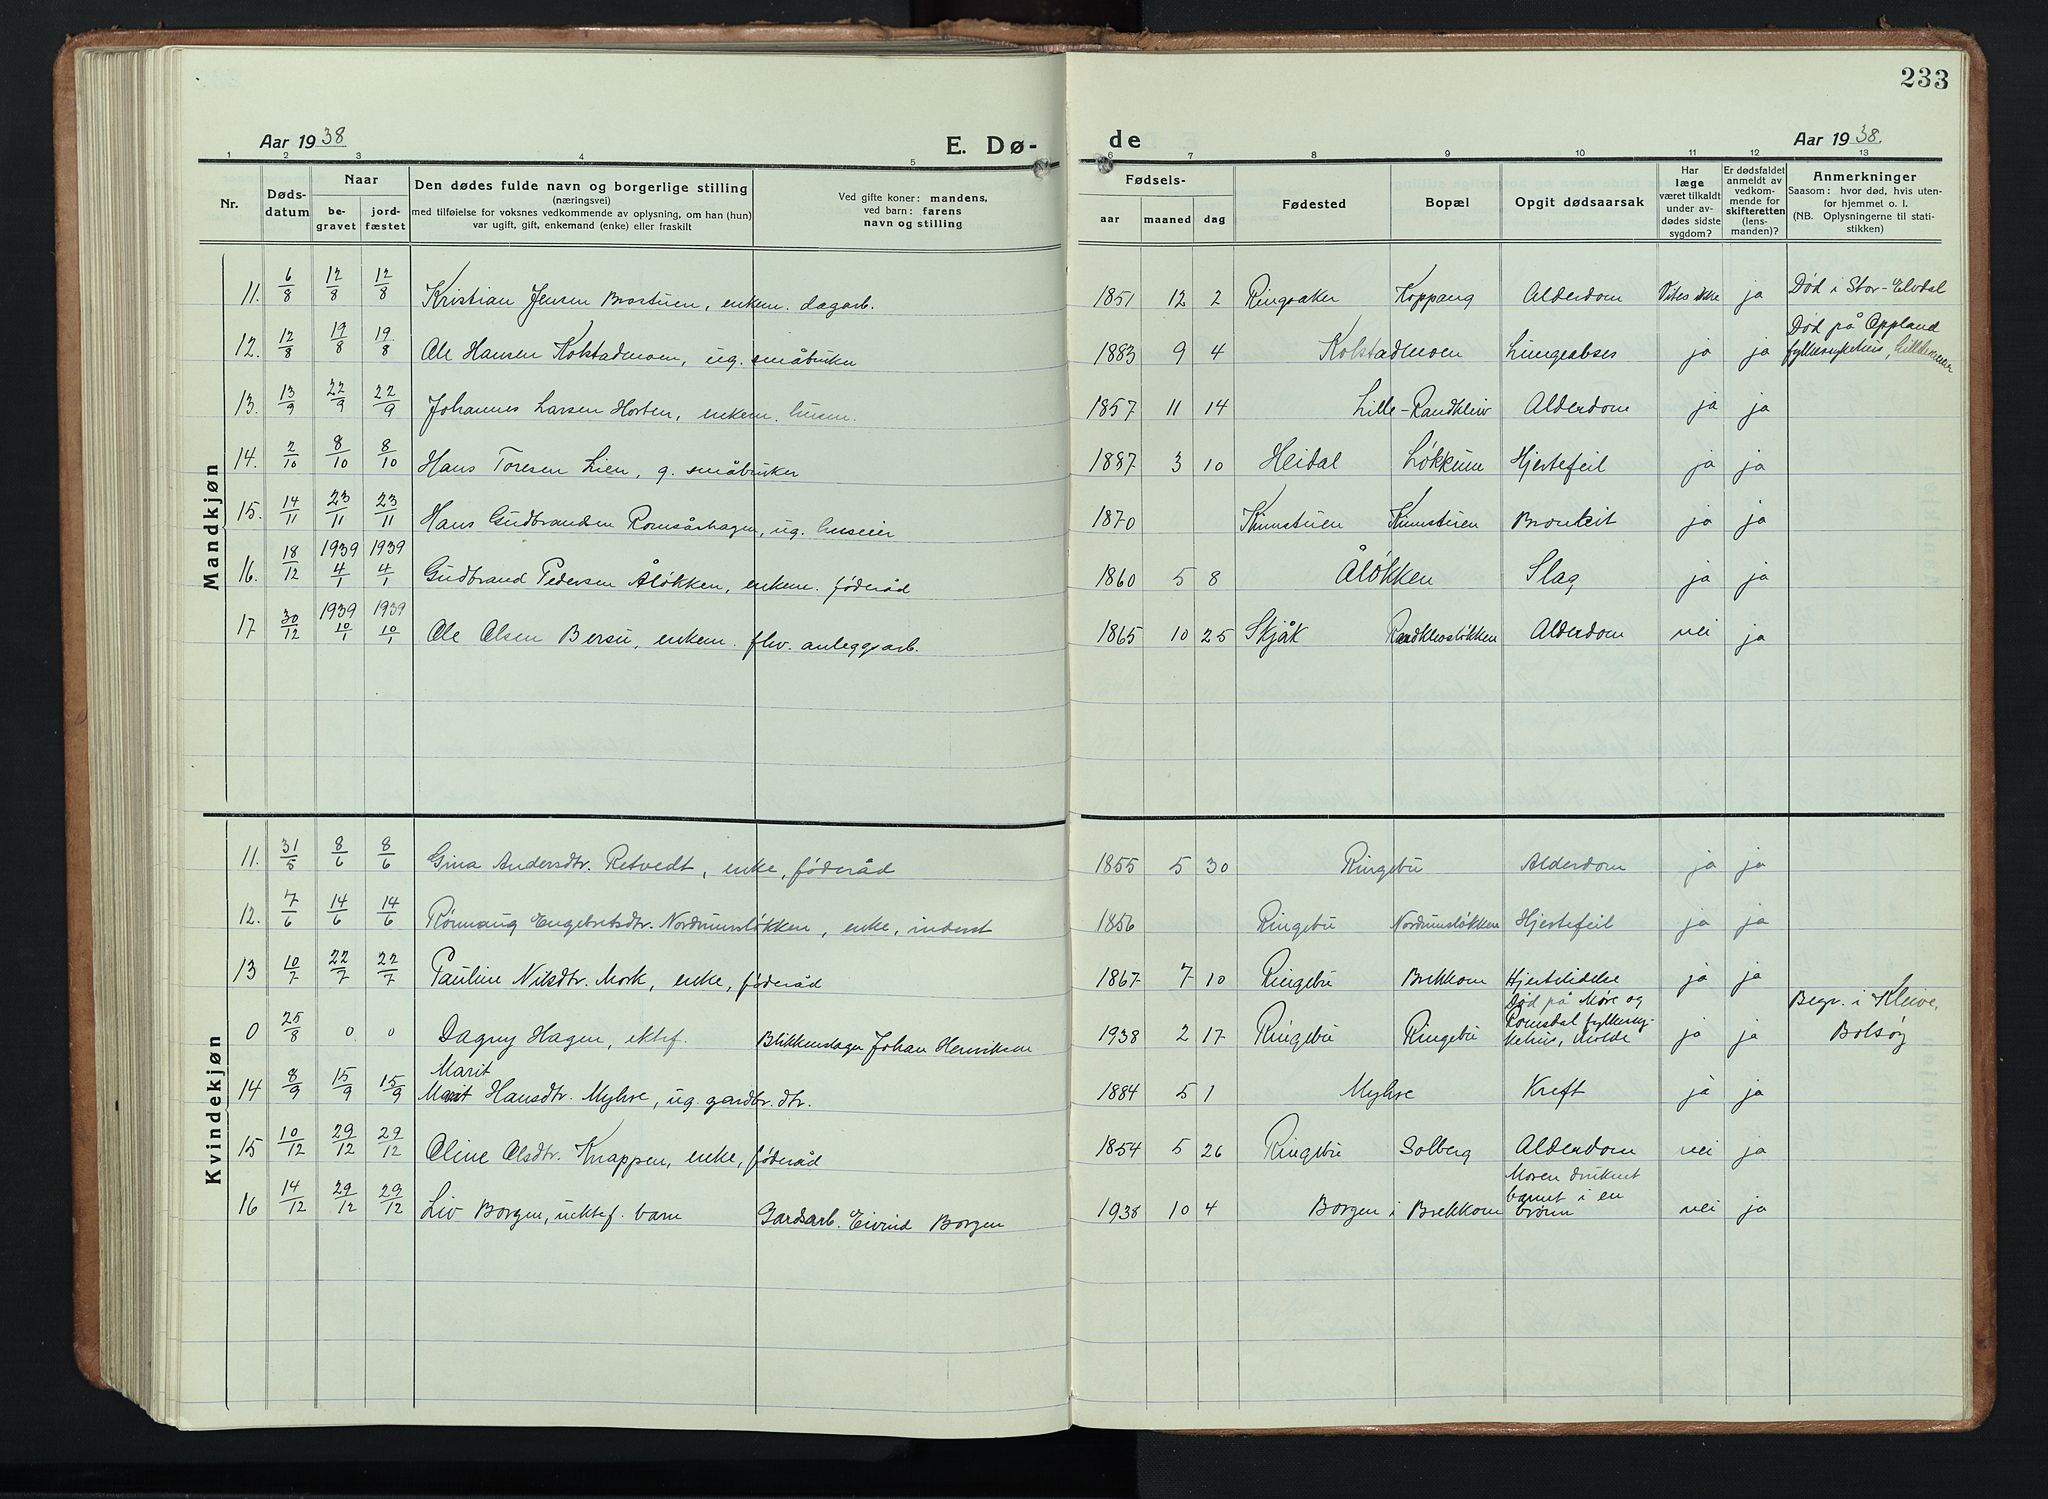 233
Aar 1938
E. Dø-
de
Aar 1938.
1 2 3 4 5 6 7 8 9 10 11 12 13
Nr.
Døds-
datum
Naar
be-
gravet
jord-
fæstet
Den dødes fulde navn og borgerlige stilling
(næringsvei)
med tilføielse for voksnes vedkommende av oplysning, om han (hun)
var ugift, gift, enkemand (enke) eller fraskilt
Ved gifte koner: mandens,
ved barn: farens
navn og stilling
Fødsels-
aar maaned dag
Fødested
Bopæl
Opgit dødsaarsak
Har
læge
været tilkaldt
under av-
dødes sidste
sygdom?
Er dødsfaldet
anmeldt av
vedkom-
mende for
skifteretten
(lens-
manden)?
Anmerkninger
Saasom: hvor død, hvis uten-
for hjemmet o. l.
(NB. Oplysningerne til stati-
stikken)
Mandkjøn
11. 6/8 12/8 12/8 Kristian Jensen Brostuen, enkem. dagarb. 1851 12 2 Ringsaker Koppang Alderdom Vites ikke ja Død i Stor-Elvdal
12. 12/8 19/8 19/8 Ole Hansen Kolstadmoen, ug. småbruker 1883 9 4 Kolstadmoen Lungeabses ja ja Død på Oppland
fylkesykehus, Lillehammer
13. 13/9 22/9 22/9 Johannes Larsen Horten, enkem. 1857 11 14 Lille-Randkleiv Alderdom ja ja
14. 2/10 8/10 8/10 Hans Toresen Lien, g. småbruker 1887 3 10 Heidal Løkkum Hjertefeil ja ja
15. 14/11 23/11 23/11 Hans Gudbrandsen Romsåshagen, ug. huseier 1870 Kimstuen Kimstuen Bronkit ja ja
16. 18/12 1939 4/1 1939 4/1 Gudbrand Pedersen Åløkken, enkem. føderåd 1860 5 8 Åløkken Slag ja ja
17 30/12 1939 10/1 1939 10/1 Ole Olsen Bersu, enkem. fhv. anleggsarb. 1865 10 25 Skjåk Randkleivsløkken Alderdom nei ja
Kvindekjøn
11. 31/5 8/6 8/6 Gina Andersdtr. Retvedt, enke, føderåd 1855 5 30 Ringebu Alderdom ja ja
12. 7/6 14/6 14/6 Rønnaug Engebretsdtr. Nordrumsløkken, enke, inderst 1856 Ringebu Nordrumsløkken Hjertefeil ja ja
13 10/7 22/7 22/7 Pauline Nilsdtr. Mork, enke, føderåd 1867 7 10 Ringebu Brekkom Hjertelidelse ja ja
0 25/8 0 0 Dagny Hagen, ektef. Blikkenslager Johan Henriksen 1938 2 17 Ringebu Ringebu Død på Møre og
Romsdal fylkessy-
kehus, Molde ja ja Begr. i Kleive,
Bolsøy
Marit
14 8/9 15/9 15/9 Marit Hansdtr. Myhre, ug. gardbr. dtr. 1884 5 1 Myhre Kreft ja ja
15 10/12 29/12 29/12 Oline Olsdtr. Knappen, enke, føderåd 1854 5 26 Ringebu Solberg Alderdom nei ja
16 14/12 29/12 29/12 Liv Borgen, uektef. barn Gardsarb. Eivind Borgen 1938 10 4 Borgen i Brekkom Moren druknet
barnet i en
brønn nei ja